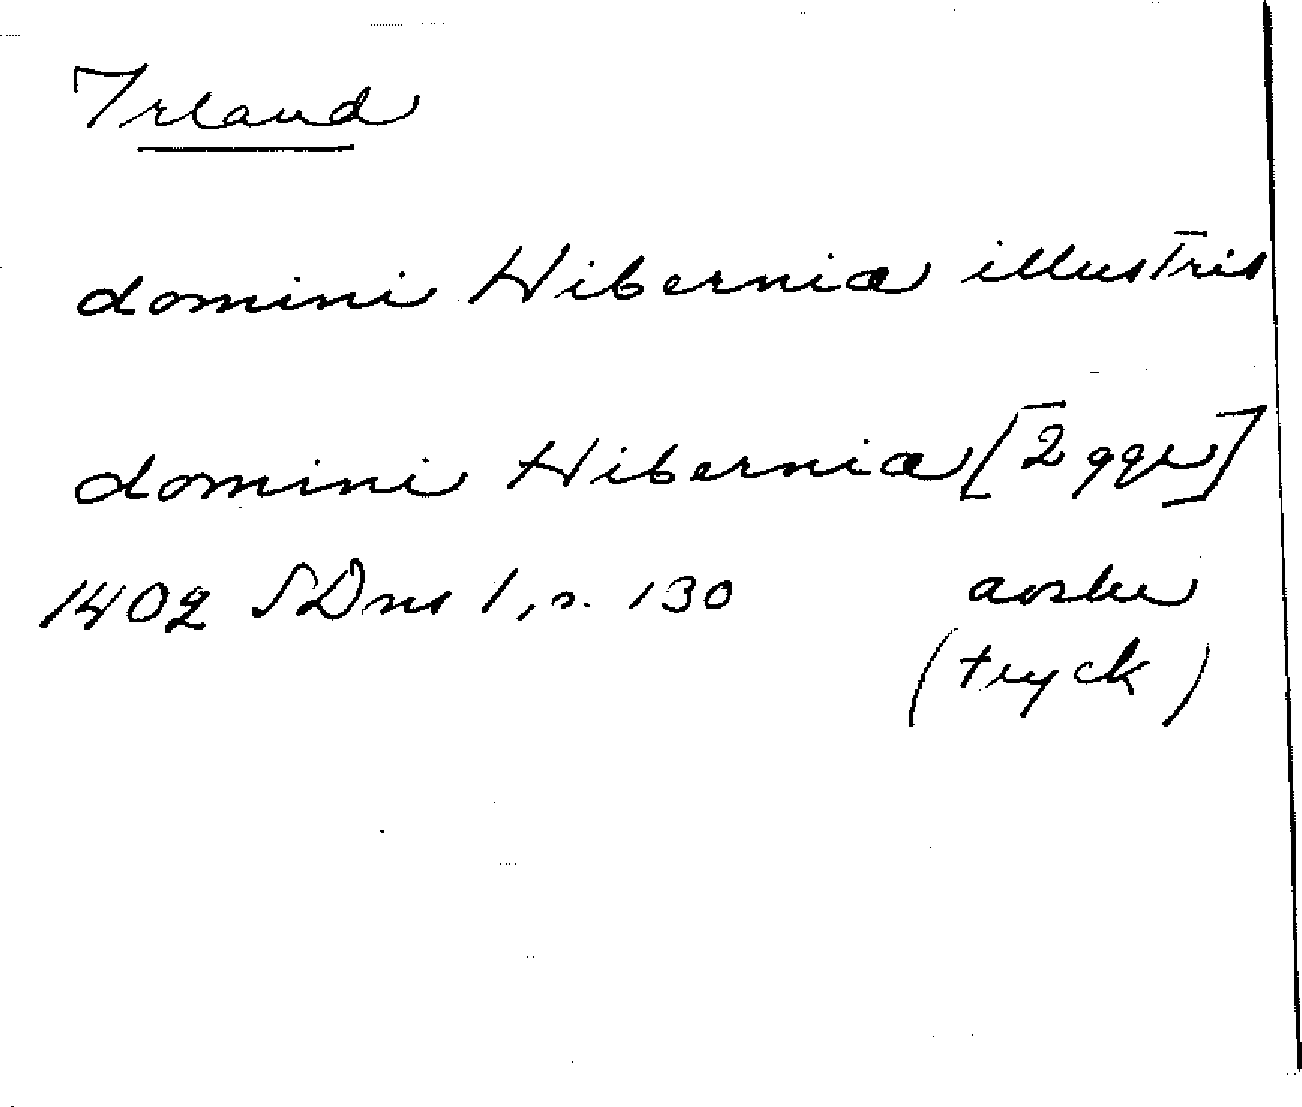 Irland
domini Hiberniæ illustris
domini Hiberniæ [2 ggr]
1402 SDns 1, s. 130 avskr
(tryck)